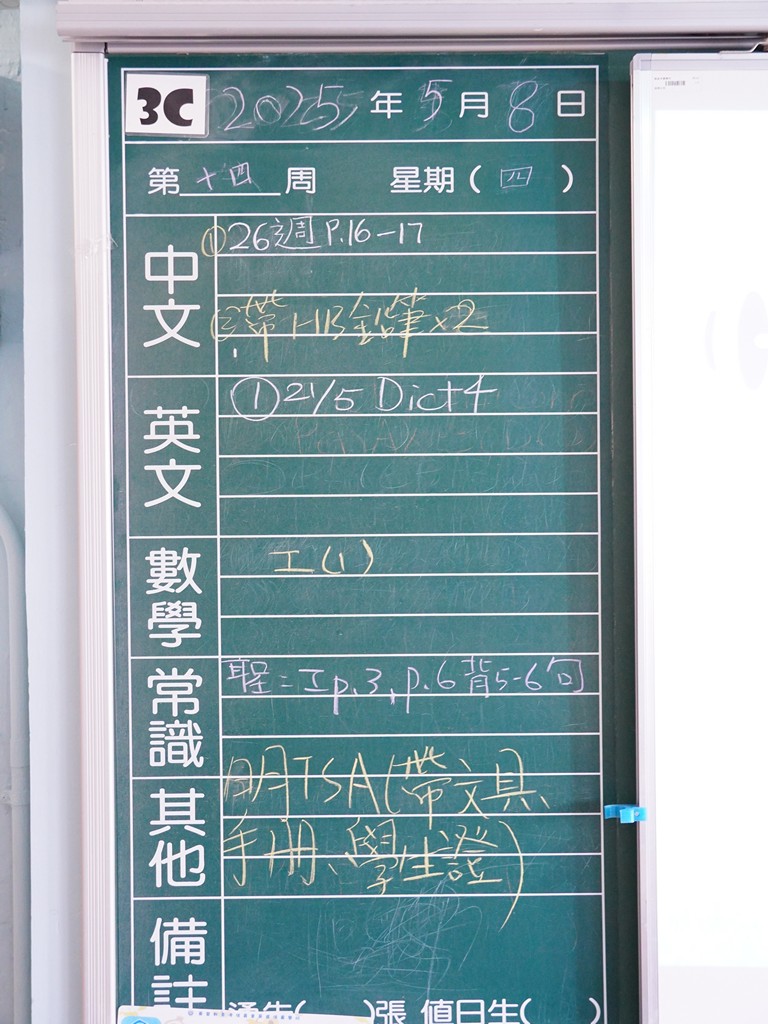 3C 2025年5月8日
第十四周 星期(四)
中文
①26週 P.16-17
②帶HB鉛筆×2
英文
①21/5 Dict 4
數學
工(1)
常識
聖=工p.3,p.6背5-6句
其他
明TSA(帶文具、
手冊、學生證)
備註
通告( )張 值日生( )